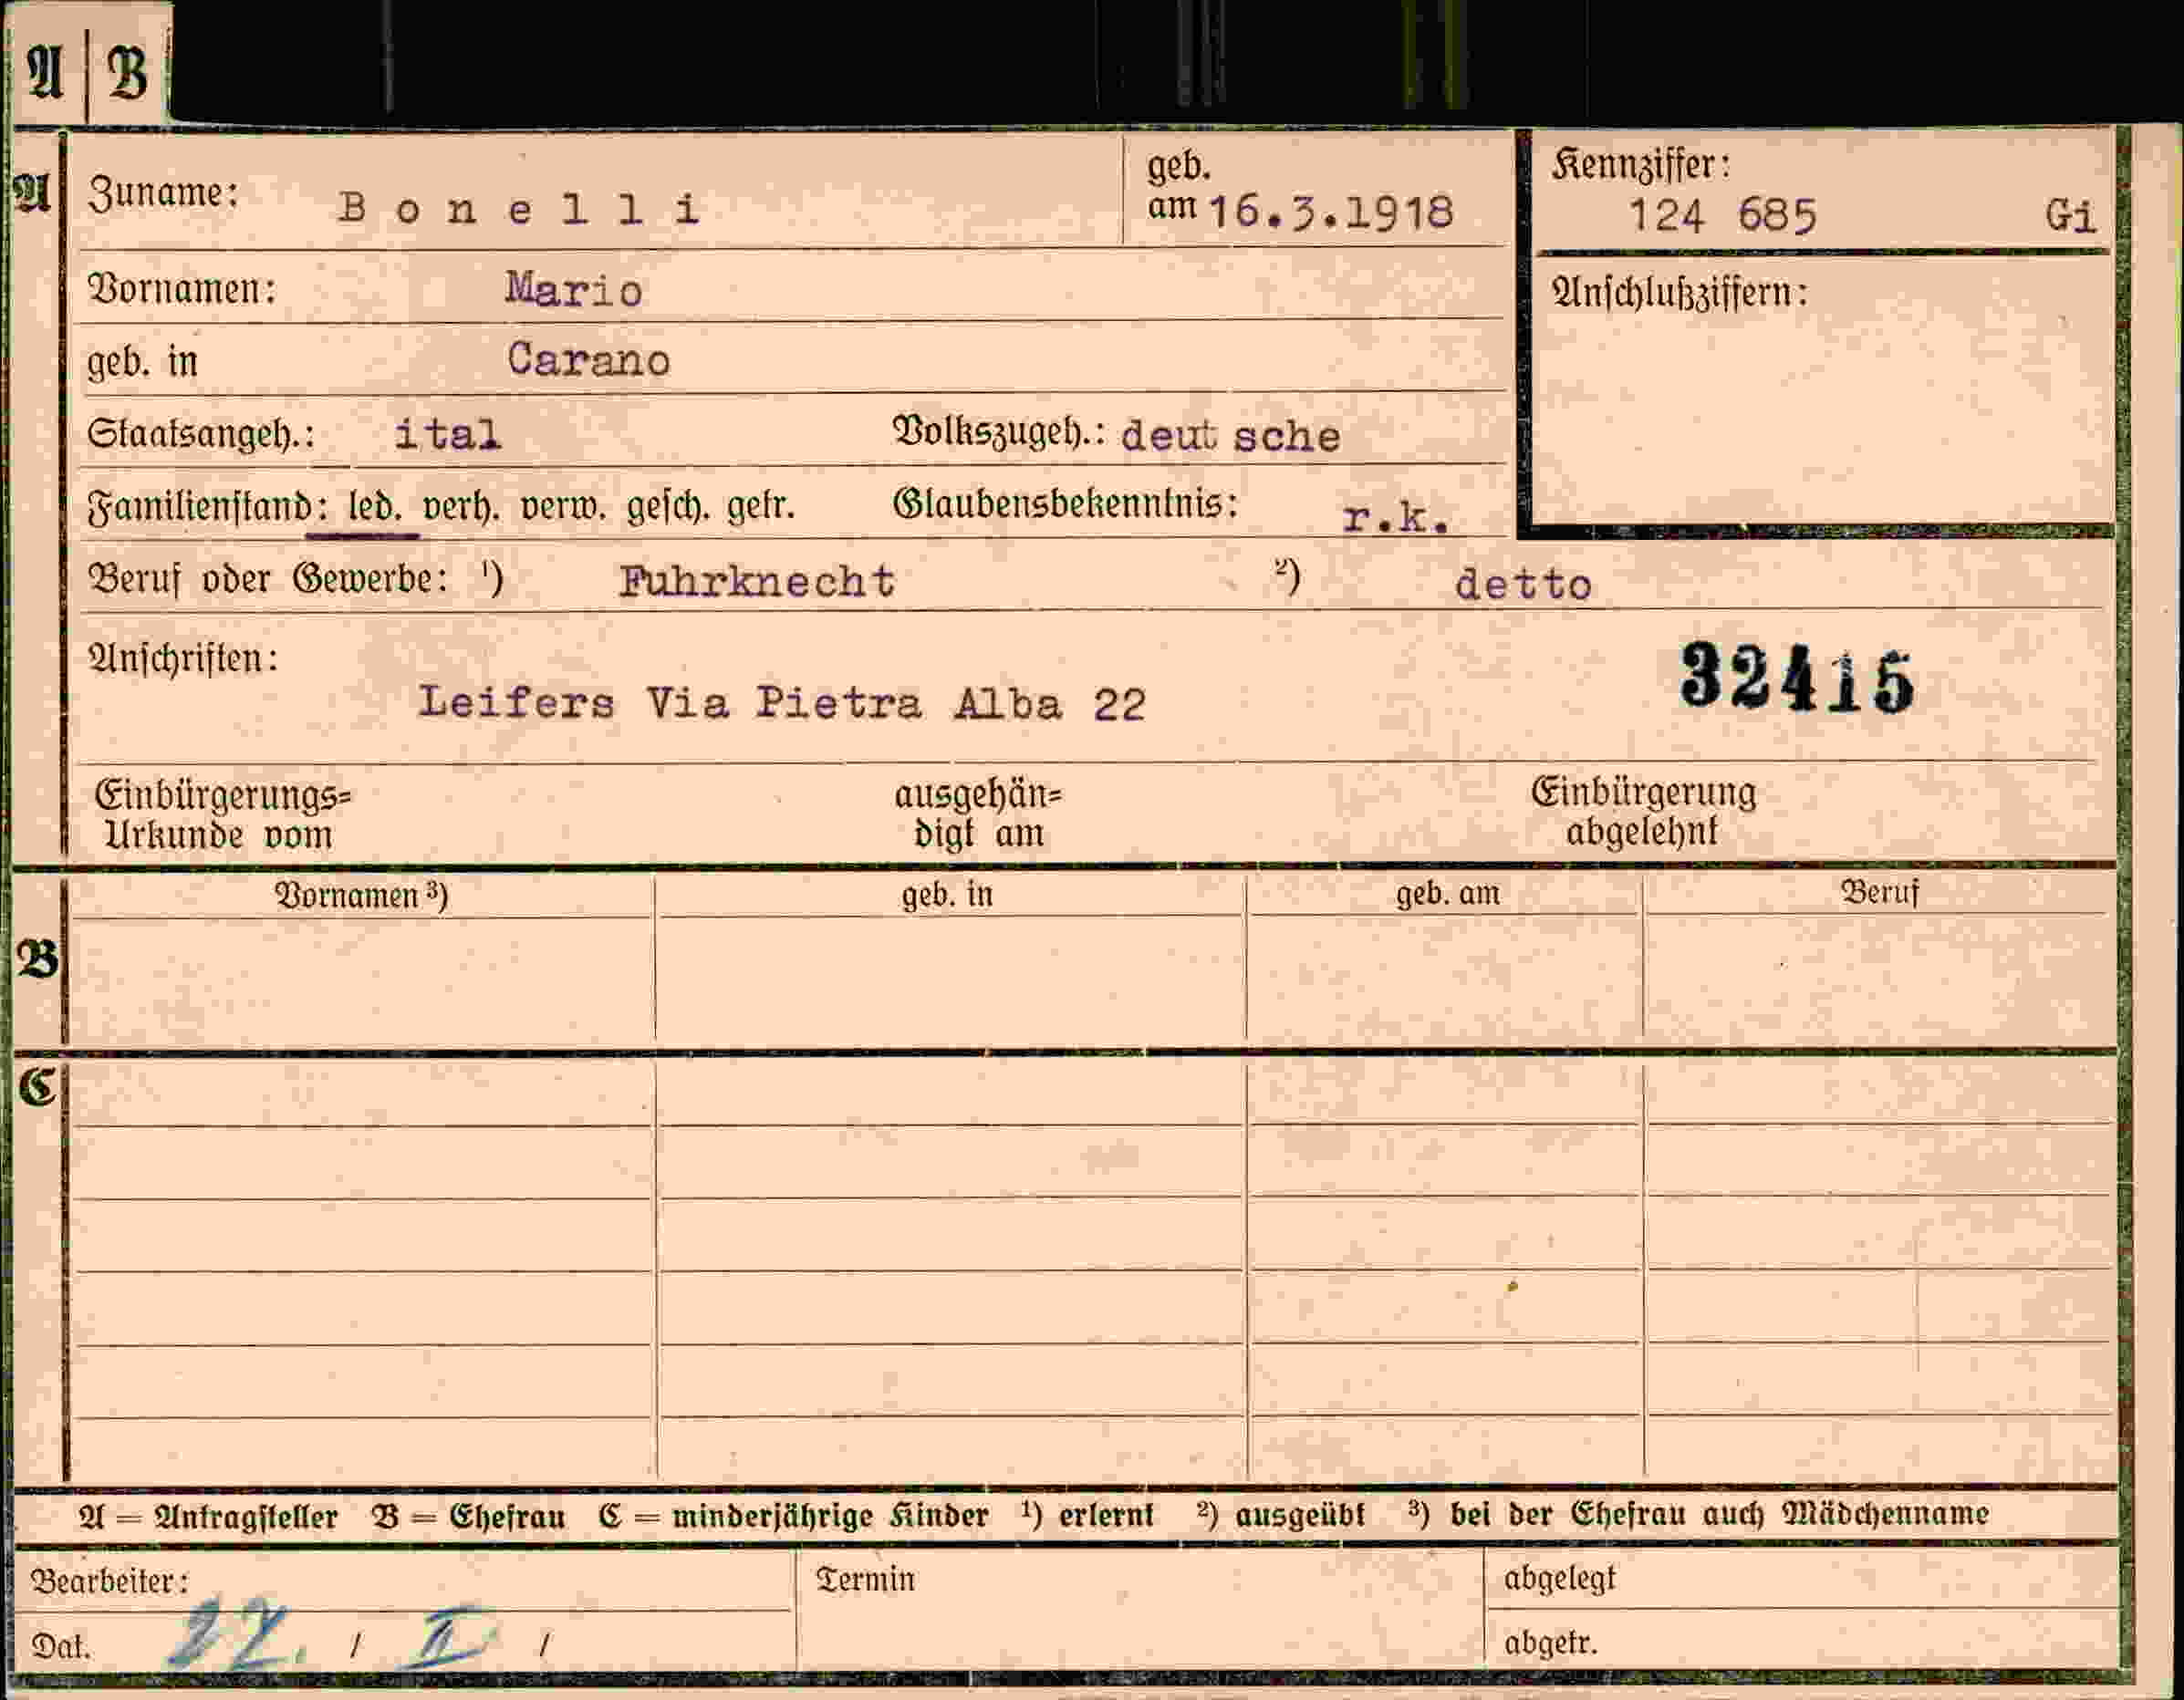 A | B
A Zuname: Bonelli geb. am 16.3.1918 Kennziffer: 124 685 Gi
Vornamen: Mario Anschlußziffern:
geb. in Carano
Staatsangeh.: ital Volkszugeh.: deut sche
Familienstand: led. verh. verw. gesch. getr. Glaubensbekenntnis: r.k.
Beruf oder Gewerbe: ¹) Fuhrknecht ²) detto
Anschriften: 32415
Leifers Via Pietra Alba 22
Einbürgerungs= ausgehän= Einbürgerung
Urkunde vom digt am abgelehnt
Vornamen ³) geb. in geb. am Beruf
B
C
A = Antragsteller B = Ehefrau C = minderjährige Kinder ¹) erlernt ²) ausgeübt ³) bei der Ehefrau auch Mädchenname
Bearbeiter: Termin abgelegt
Dat. 27. / II / abgetr.